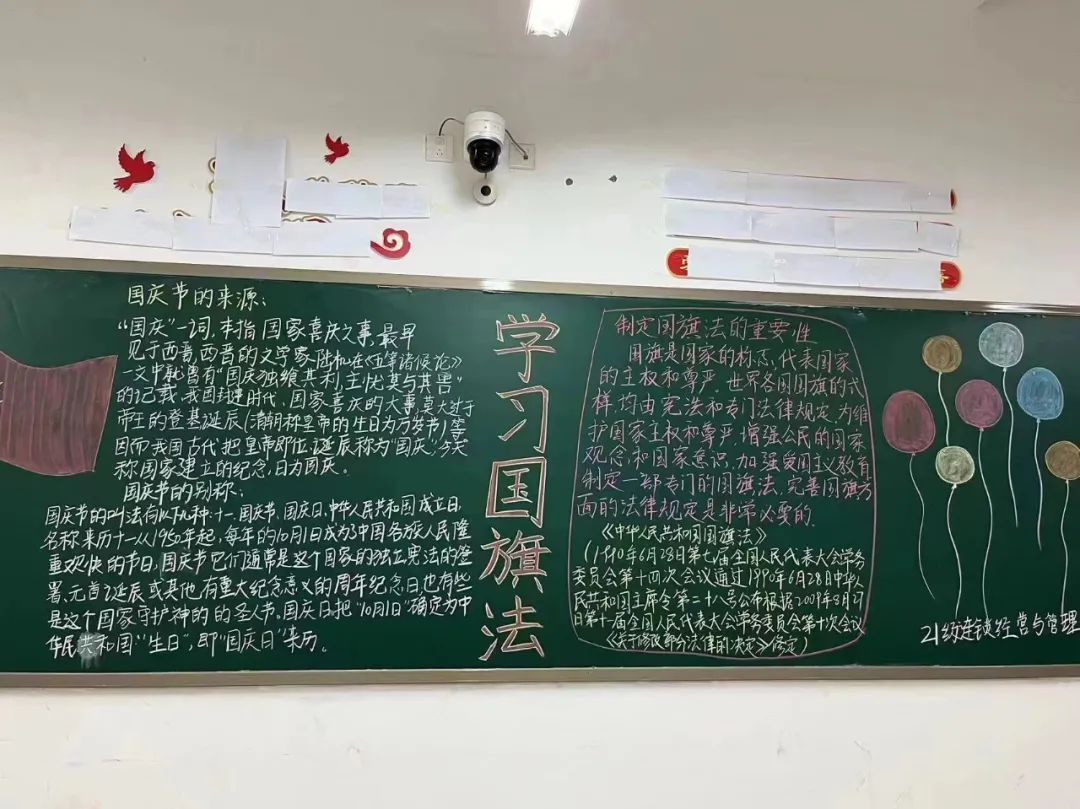 国庆节的来源:
“国庆”一词,本指国家喜庆之事,最早
见于西晋,西晋的文学家陆机在《五等诸侯论》
一文中就曾有“国庆独飨其利,主忧莫与其害”
的记载,我国封建时代、国家喜庆的大事,莫大过于
帝王的登基诞辰(清朝称皇帝的生日为万岁节)等
因而我国古代把皇帝即位、诞辰称为“国庆”,今天
称国家建立的纪念日为国庆。
国庆节的别称:
国庆节的叫法有以下九种:十一、国庆节、国庆日、中华人民共和国成立日,
名称来历十一从1950年起,每年的10月1日成为中国各族人民隆
重欢庆的节日,国庆节它们通常是这个国家的独立宪法的签
署、元首诞辰或其他有重大纪念意义的周年纪念日,也有些
是这个国家守护神的的圣人节。国庆日把“10月1日”确定为中
华民共和国“生日”,即“国庆日”来历。
学习国旗法
制定国旗法的重要性
国旗是国家的标志,代表国家
的主权和尊严,世界各国国旗的式
样,均由宪法和专门法律规定,为维
护国家主权和尊严,增强公民的国家
观念和国家意识,加强爱国主义教育
制定一部专门的国旗法,完善国旗方
面的法律规定是非常必要的.
《中华人民共和国国旗法》
(1990年6月28日第七届全国人民代表大会常务
委员会第十四次会议通过1990年6月28日中华人
民共和国主席令第二十八号公布根据2009年8月27
日第十一届全国人民代表大会常务委员会第十次会议
《关于修改部分法律的决定》修定)
21级连锁经营与管理